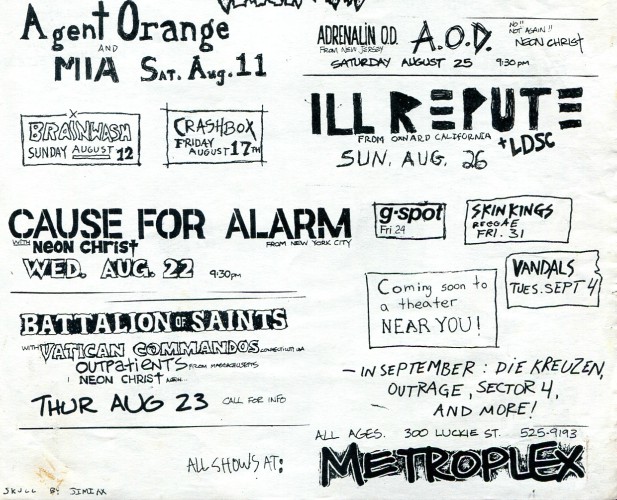 Agent Orange
AND
MIA SAT. Aug. 11
BRAINWASH
SUNDAY AUGUST 12
CRASHBOX
FRIDAY
AUGUST 17TH
CAUSE FOR ALARM
WITH NEON CHRIST
FROM NEW YORK CITY
WED. AUG. 22 9:30pm
BATTALION OF SAINTS
WITH VATICAN COMMANDOS CONNECTICUT USA
OUTPATIENTS FROM MASSACHUSETTS
NEON CHRIST
THUR AUG 23 CALL FOR INFO
ADRENALIN O.D. A.O.D.
FROM NEW JERSEY
NO!! NOT AGAIN!!
NEON CHRIST
SATURDAY AUGUST 25 9:30pm
ILL REPUTE
FROM OXNARD CALIFORNIA
+ LDSC
SUN. AUG. 26
g-spot
Fri 24
SKIN KINGS
REGGAE
FRI. 31
VANDALS
TUES. SEPT 4
Coming soon to
a theater
NEAR YOU!
— IN SEPTEMBER: DIE KREUZEN,
OUTRAGE, SECTOR 4,
AND MORE!
ALL AGES. 300 LUCKIE ST. 525-9193
ALL SHOWS AT:
METROPLEX
SKULL BY JIMI AX